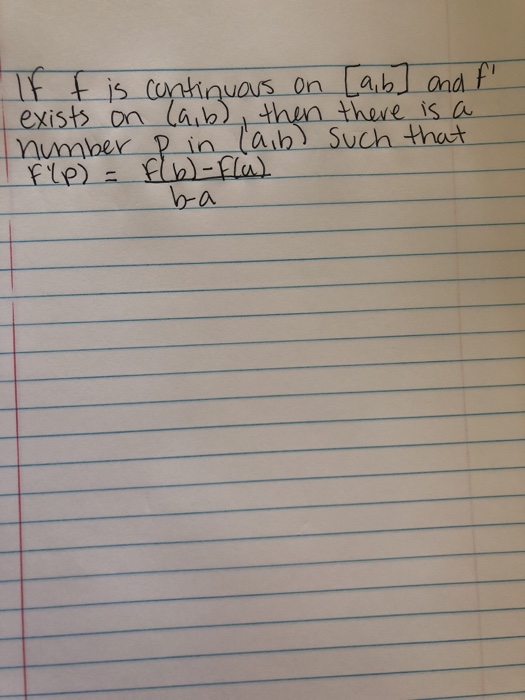 If f is continuous on [a,b] and f'
exists on (a,b), then there is a
number p in (a,b) such that
f'(p) = f(b)-f(a)
b-a